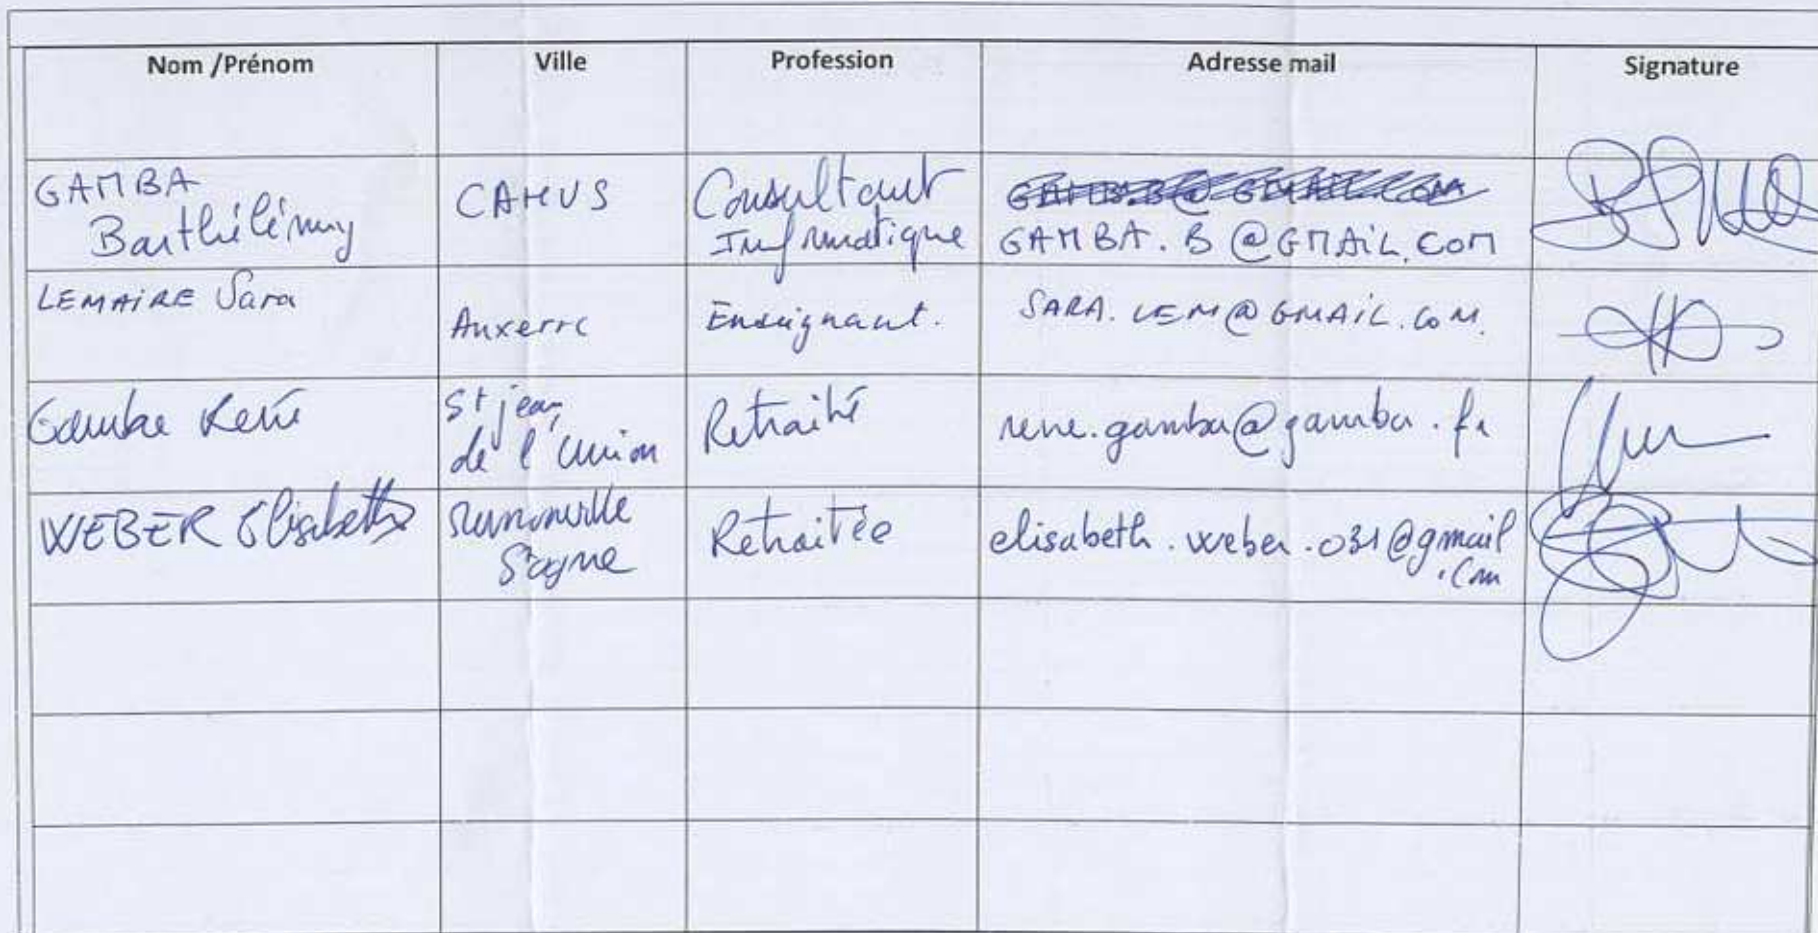 Nom /Prénom Ville Profession Adresse mail Signature
GAMBA
Barthélémy
CAMUS
Consultant
Informatique
GAMBA.B@GMAIL.COM
GAMBA.B@GMAIL.COM
LEMAIRE Sara
Auxerre
Enseignant.
SARA.LEM@GMAIL.COM.
Gamba René
St jean
de l'union
Retraité
rene.gamba@gamba.fr
WEBER Elisabeth
Retraitée
elisabeth.weber.031@gmail
.com